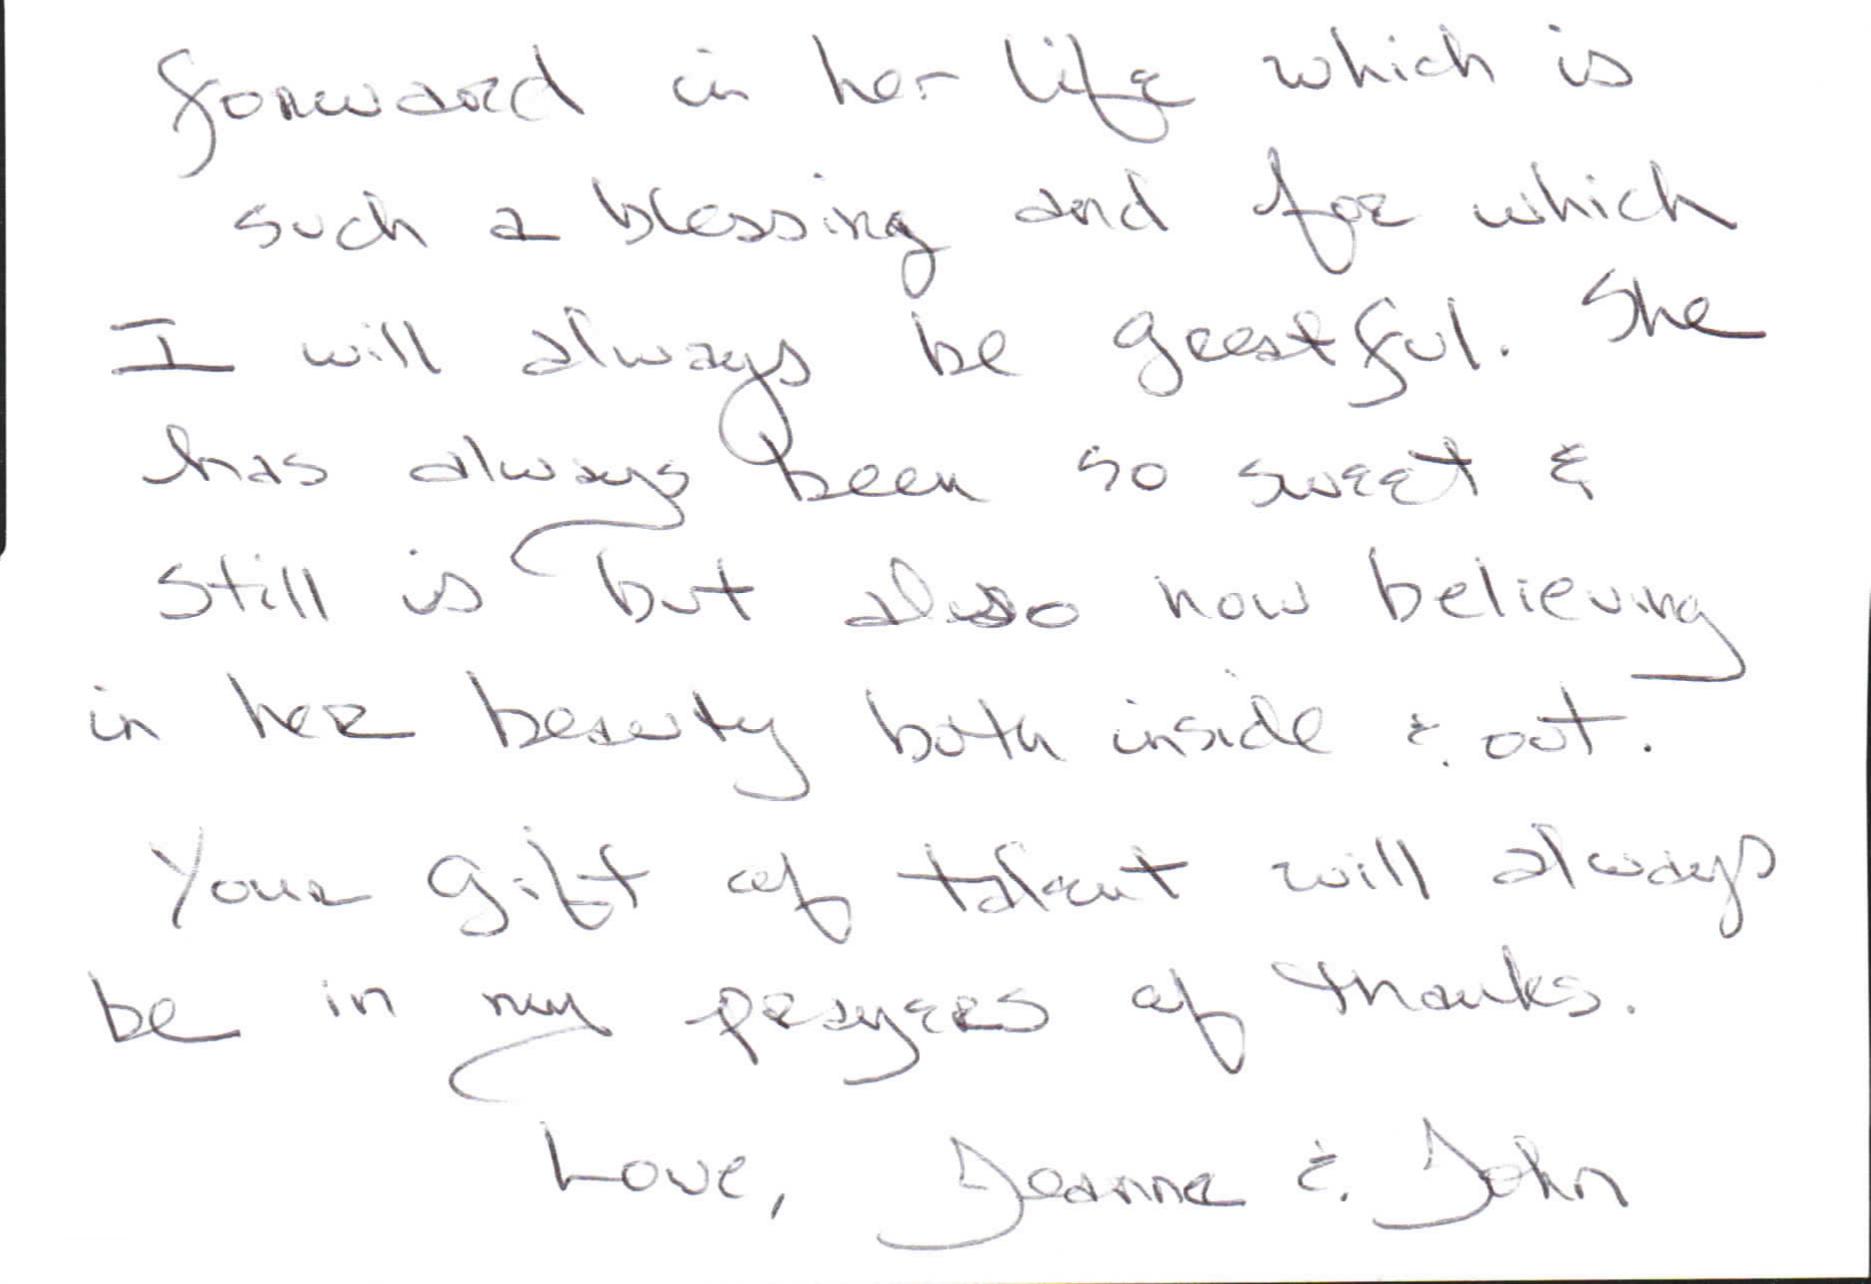 forward in her life which is
such a blessing and for which
I will always be greatful. She
has always been so sweet &
still is but also now believing
in her beauty both inside & out.
Your gift of talent will always
be in my prayers of thanks.
Love, Jeanne & John